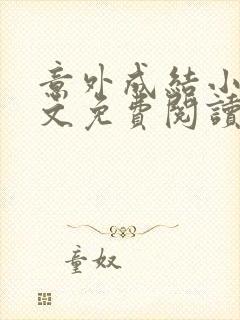 意外成結小
文免費閱讀
童奴